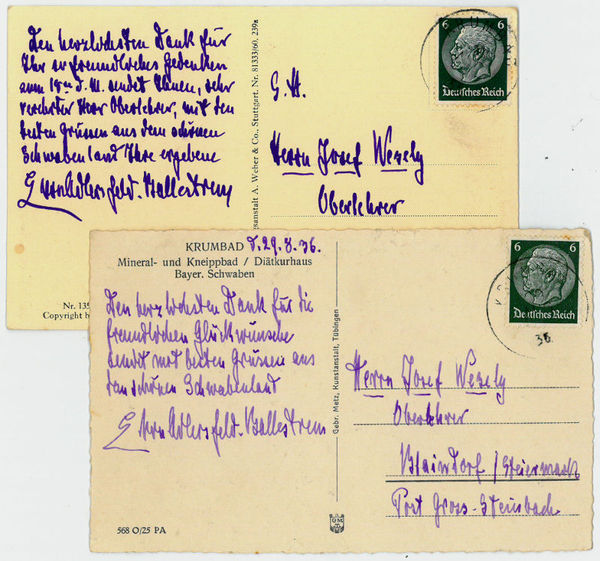 Den herzlichsten Dank für
Ihr so freundliches Gedenken
zum 18ten d. M. sendet Ihnen, sehr
verehrter Herr Oberlehrer, mit den
besten Grüssen aus dem schönen
Schwabenland Ihre ergebene
E von Adlersfeld-Ballestrem
Nr. 135
Copyright b
gsanstalt A. Weber & Co., Stuttgart. Nr. 81333/60, 239a
6 6
Deutsches Reich
S. H.
Herrn Josef Wesely
Oberlehrer
KRUMBAD d. 29. 8. 36.
Mineral- und Kneippbad / Diätkurhaus
Bayer. Schwaben
Den herzlichsten Dank für die
freundlichen Glückwünsche
sendet mit besten Grüssen aus
dem schönen Schwabenland
E von Adlersfeld-Ballestrem
568 O/25 PA
Gebr. Metz, Kunstanstalt, Tübingen
GMT
6 6
Deutsches Reich
36
Herrn Josef Wesely
Oberlehrer
Blaindorf / Steiermark
Post Gross-Steinbach